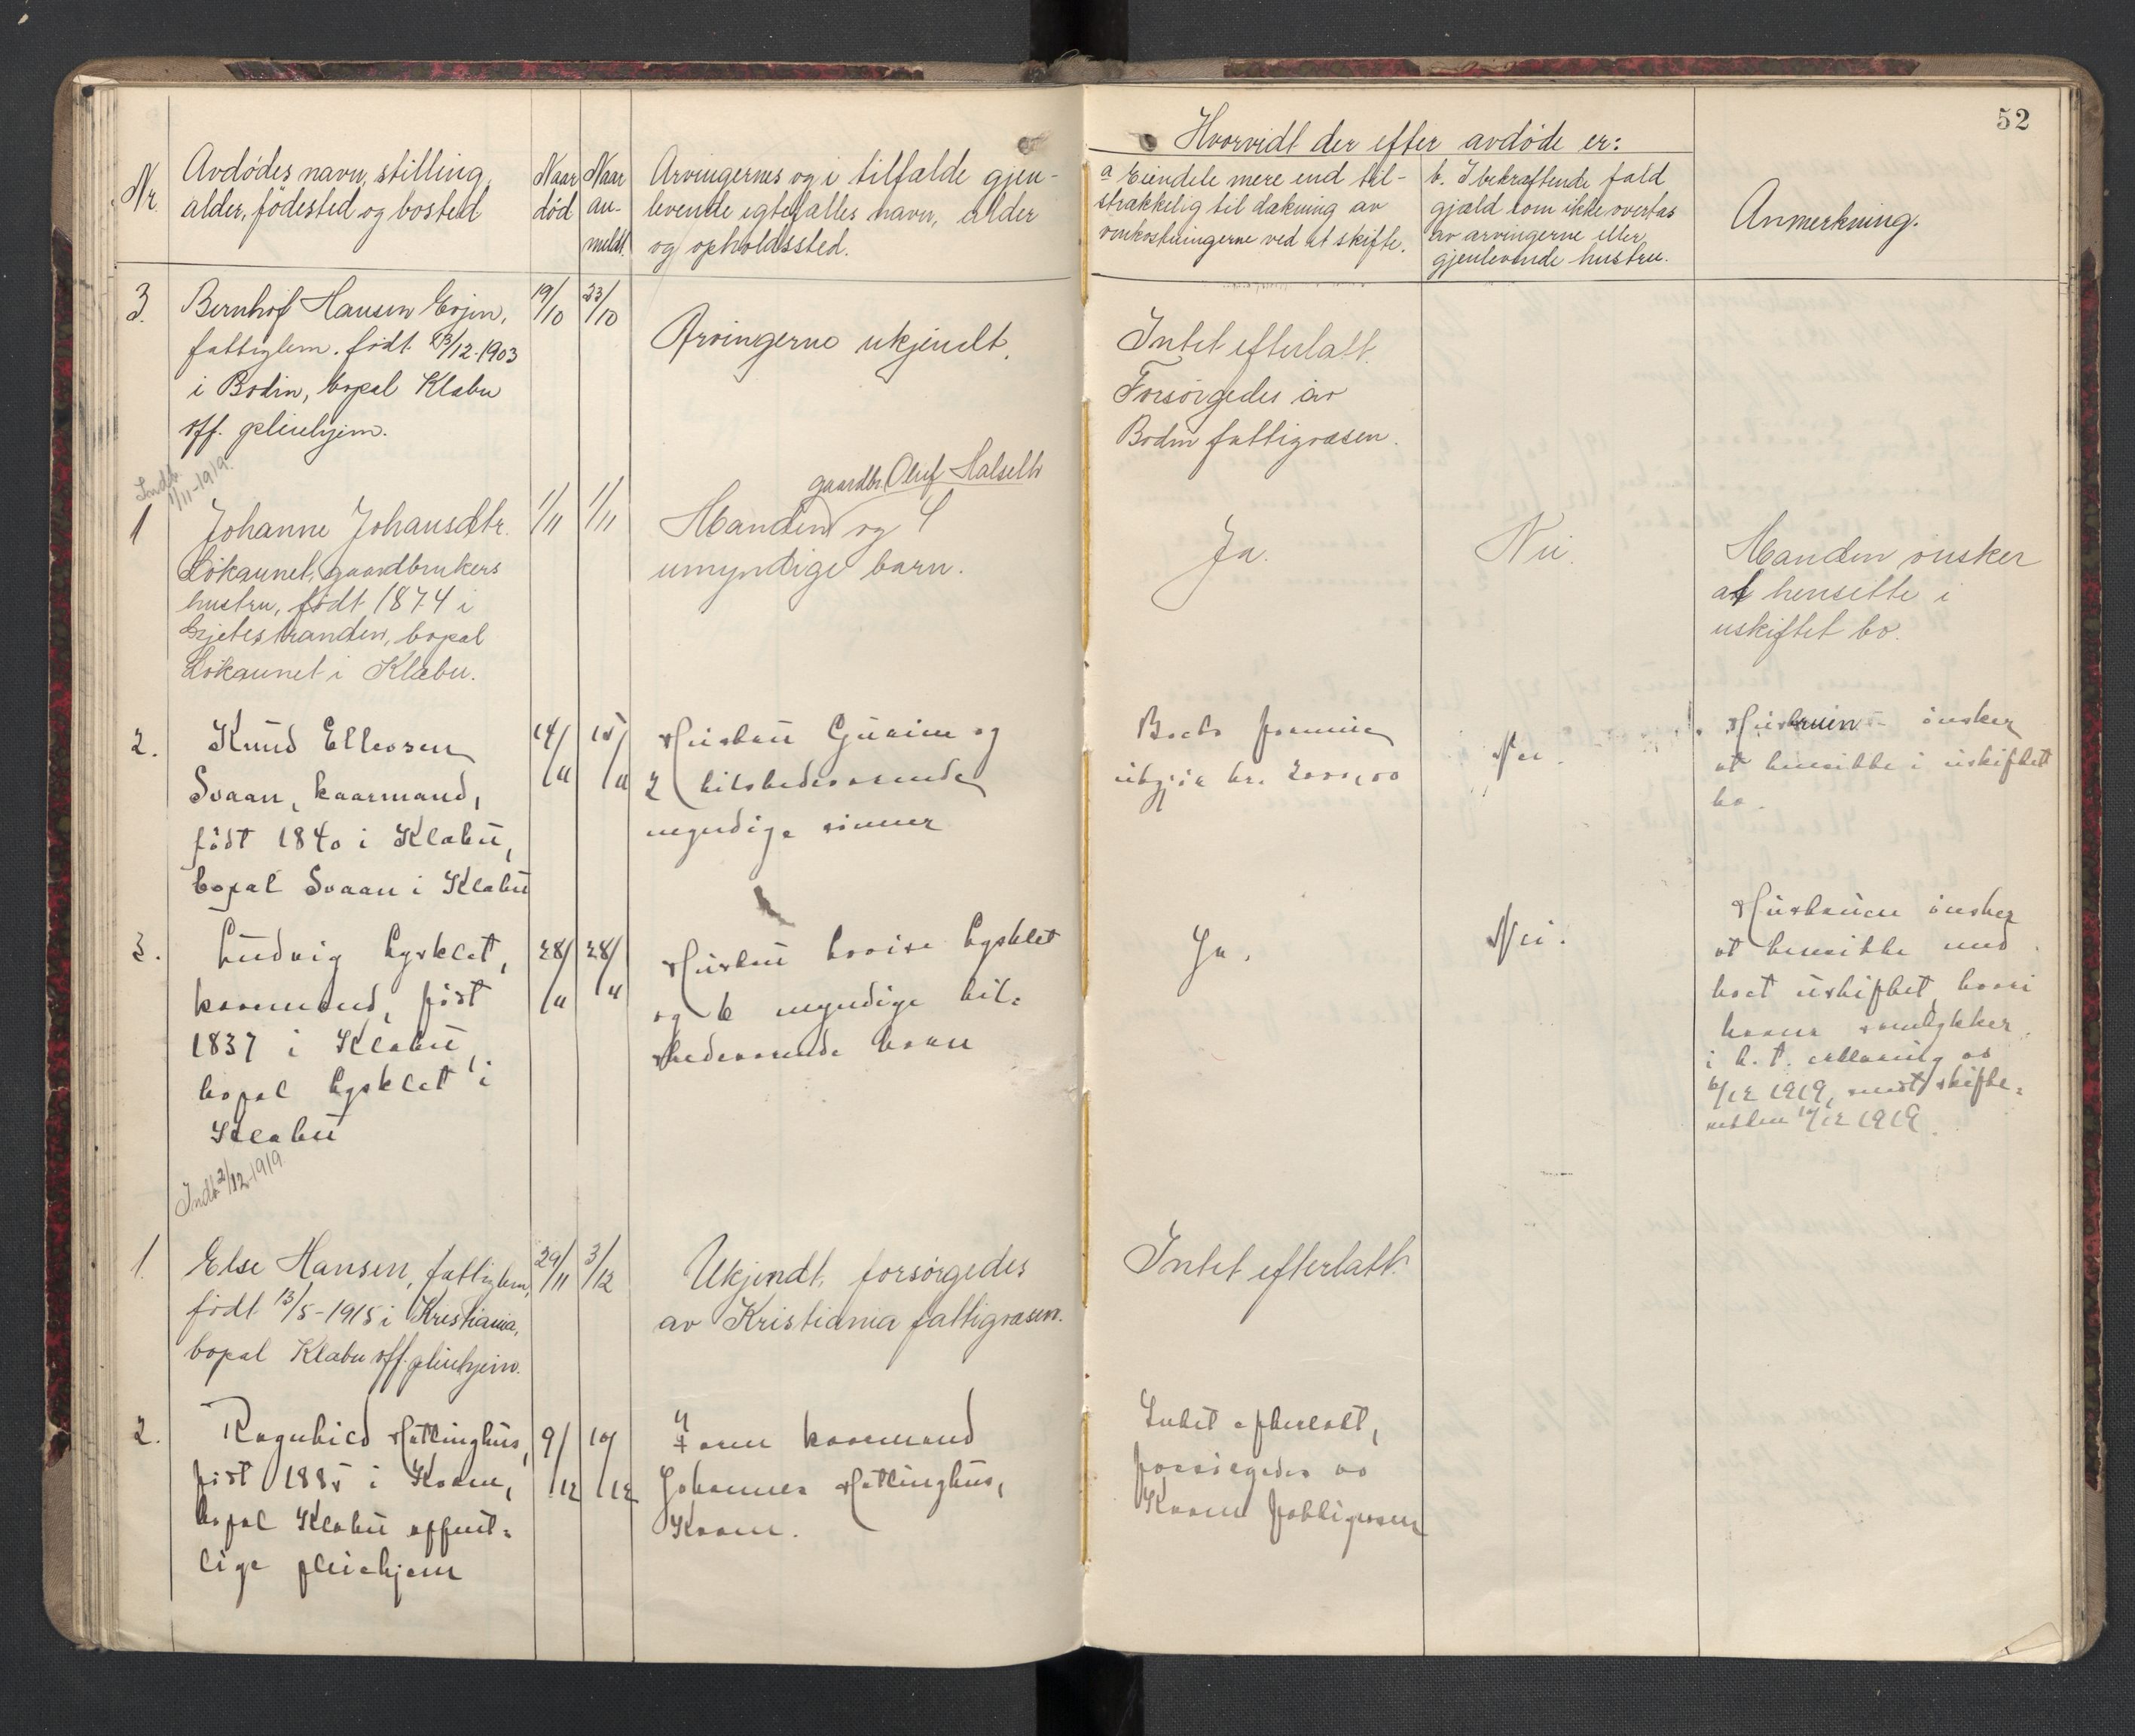 52
Nr.
Avdødes navn, stilling,
alder, fødested og bosted
Naar
død
Naar
an-
meldt.
Arvingernes og i tilfælde gjen-
levende egtefælles navn, alder
og opholdssted.
Hvorvidt der efter avdøde er:
a Eiendele mere end til-
strækkelig til dækning av
omkostningerne ved et skifte.
b. I bekræftende fald
gjæld som ikke overtas
av arvingerne eller
gjenlevende hustru.
Anmerkning.
3.
Bernhof Hansen
fattiglem. født /12-1903
i Bodin, bopæl Klæbu
off. pleiehjem.
19/10
23/10
Arvingerne ukjendt.
Intet efterlatt.
Forsørgedes av
Bodin fattigvæsen.
Indb.
1/11-1919.
1
Johanne Johansdtr.
Løkaunet, gaardbrukers
hustru, født 1874 i
bopæl
Løkaunet i Klæbu.
1/11
1/11
gaardbr. Oluf Halseth
Manden og 4
umyndige barn.
Ja.
Nei.
Manden ønsker
at hensitte i
uskiftet bo.
2.
Knud Ellevsen
Svaan, kaarmand,
født 1840 i Klæbu,
bopæl Svaan i Klæbu
14/11
15/11
Hustru Guruine og
2 tilstedeværende
myndige sønner
Boets formue
utgjør kr. 2000,00
Nei.
Hustruen ønsker
at hensitte i uskiftet
bo.
3.
Ludvig Lysklet,
kaarmand, født
1837 i Klæbu,
bopæl Lysklet i
Klæbu
28/11
28/11
Hustru Lovise Lysklet
og 6 myndige til-
stedeværende barn
Ja.
Nei.
Hustruen ønsker
at hensitte med
boet uskiftet, hvori
barna samtykker
i h. t. erklæring av
6/12 1919, sendt skifte-
retten 10/12 1919.
Indb. 2/12-1919
1.
Else Hansen, fattiglem,
født 13/5-1915 i Kristiania,
bopæl Klæbu off. pleiehjem.
29/11
3/12
Ukjendt, forsørgedes
av Kristiania fattigvæsen.
Intet efterlatt.
2.
Ragnhild Hallinghus,
født 1885 i Kvam,
bopæl Klæbu offent-
lige pleiehjem
9/12
10/12
Faren kaarmand
Johannes Hallinghus,
Kvam.
Intet efterlatt,
forsørgedes av
Kvam fattigvæsen